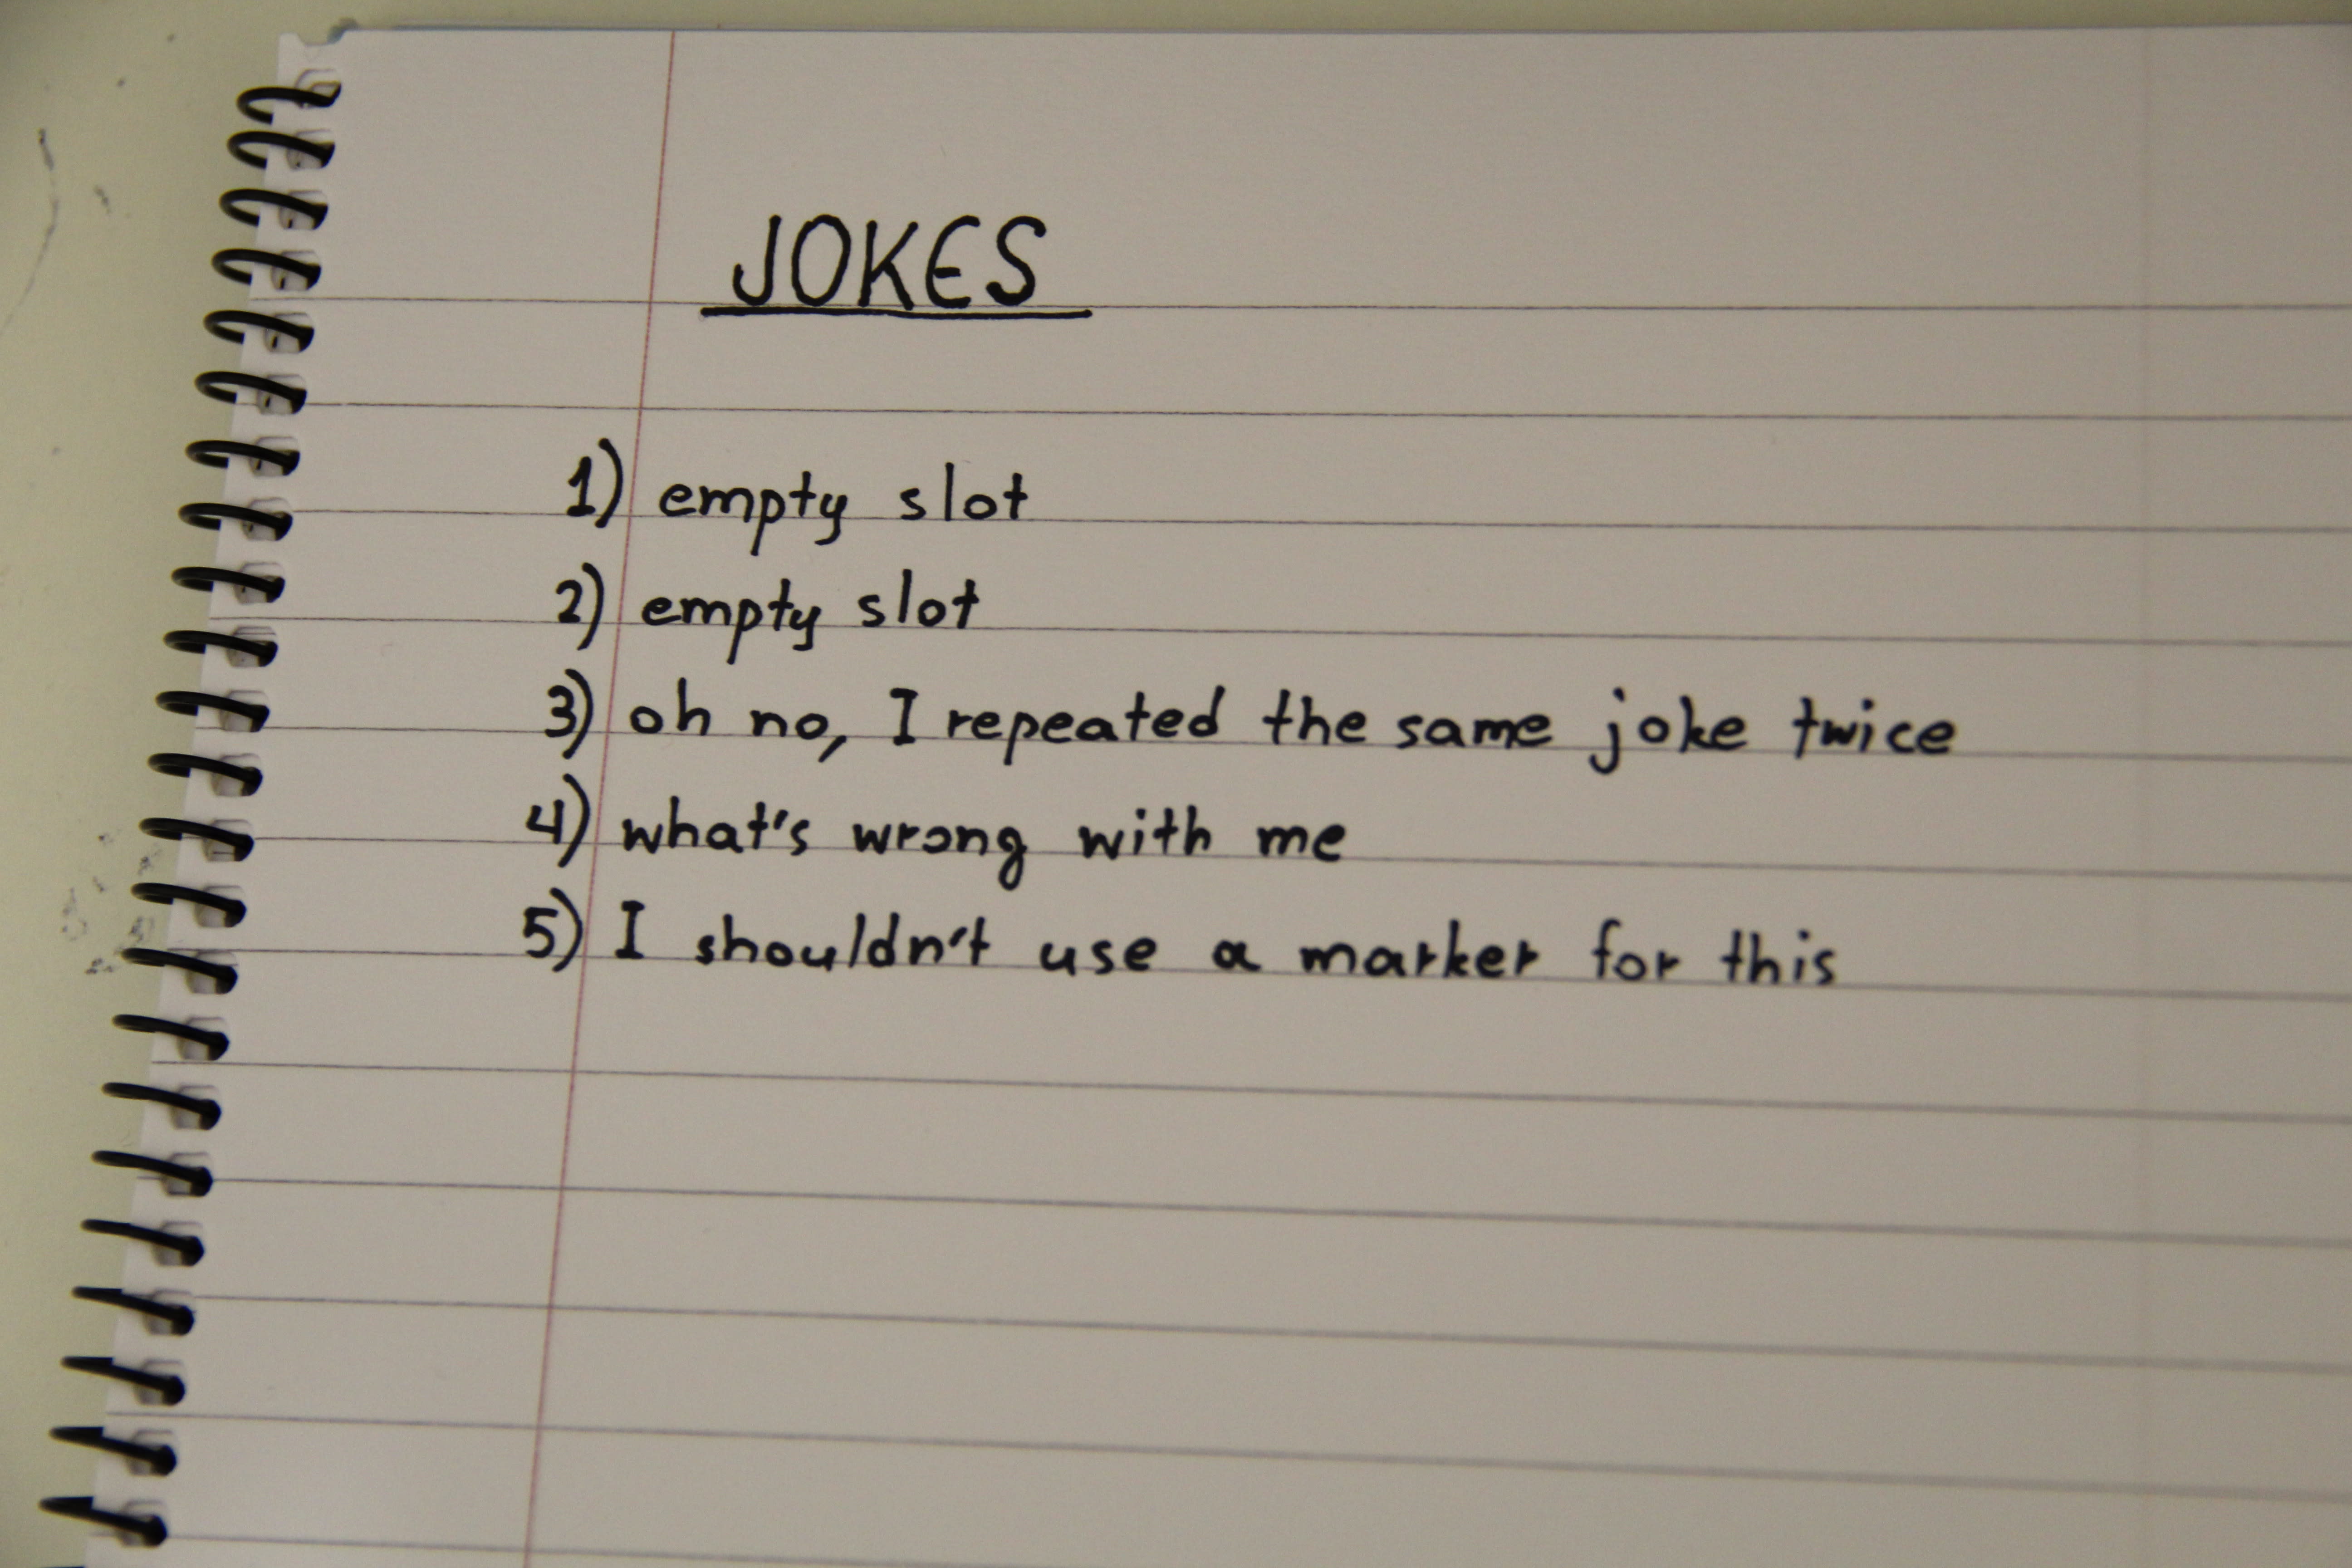 JOKES
1) empty slot
2) empty slot
3) oh no, I repeated the same joke twice
4) what's wrong with me
5) I shouldn't use a marker for this